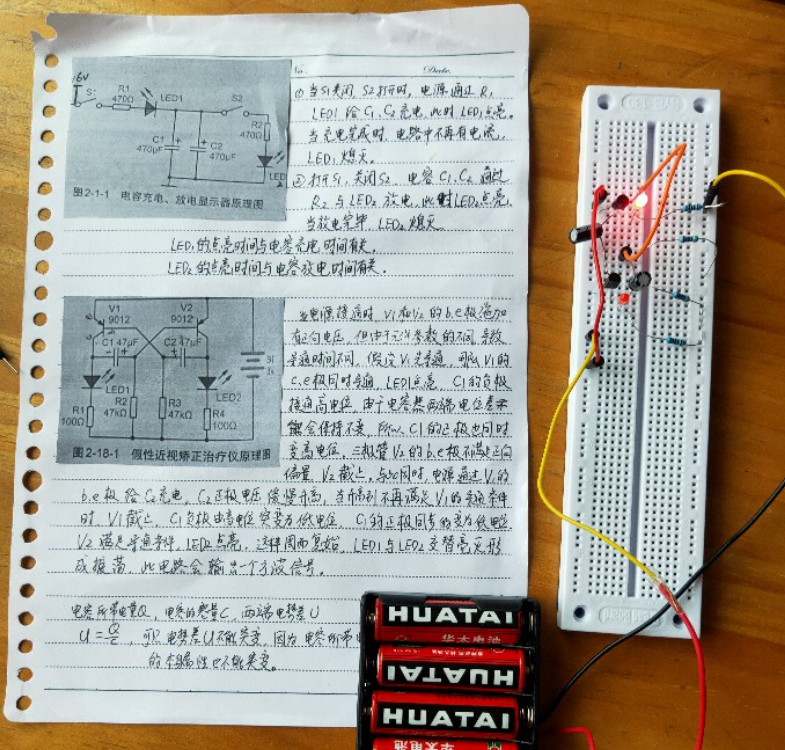 No. Date.
6V
S1
R1
470Ω
LED1
S2
R2
470Ω
C1
470μF
C2
470μF
LED
图2-1-1 电容充电、放电显示器原理图
① 当S1关闭 S2打开时, 电源通过R1
LED1给C1、C2充电, 此时LED1点亮。
当充电完成时, 电路中不再有电流,
LED1熄灭。
② 打开S1, 关闭S2 电容C1、C2 通过
R2与LED2放电, 此时LED2点亮,
当放电完毕 LED2熄灭
LED1的点亮时间与电容充电时间有关。
LED2的点亮时间与电容放电时间有关。
V1
9012
V2
9012
C1 47μF
C2 47μF
LED1
R2
47kΩ
R3
47kΩ
LED2
R1
100Ω
R4
100Ω
图2-18-1 假性近视矫正治疗仪原理图
当电源接通时, V1和V2的b.e极施加
有正向电压, 但由于元件参数的不同, 导致
导通时间不同, 假设V1先导通, 那么V1的
c.e极同时导通, LED1点亮, C1的负极
接通高电位, 由于电容器两端电位差不
能会保持不变, 所以C1的正极也同时
变高电位, 三极管V2的b.e极不满足正向
偏置, V2截止, 与此同时, 电源通过V1的
b.e极给C2充电, C2正极电压缓慢升高, 当升高到不再满足V1的导通条件
时, V1截止, C1负极由高电位突变为低电位, C1的正极同步的变为低电位
V2满足导通条件, LED2点亮, 这样周而复始, LED1与LED2交替亮灭形
成振荡, 此电路会输出一个方波信号。
电容所带电量Q, 电容的容量C, 两端电势差U
U=Q/C, 即电势差U不能突变, 因为电容所带电
的本属性也不能突变。
HUATAI
华太电池
HUATAI
HUATAI
华太电池